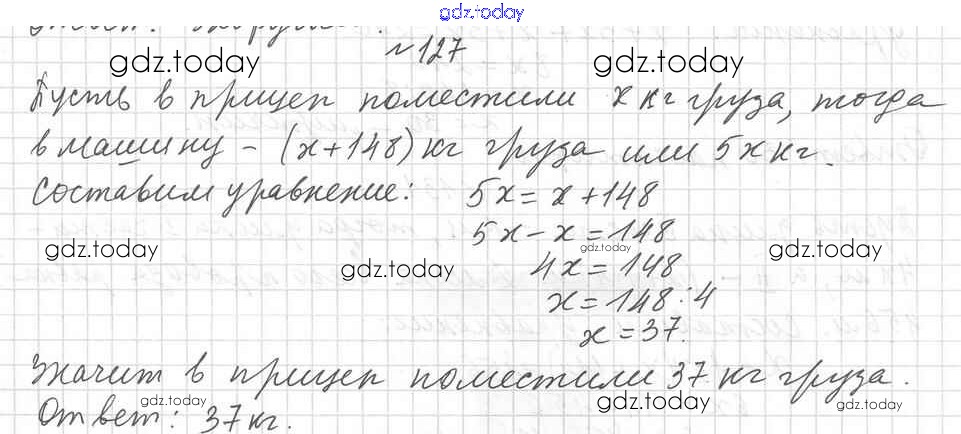 gdz.today
Ответ:
№127
gdz.today gdz.today
Пусть в прицеп поместили х кг груза, тогда
в машину - (х+148) кг груза или 5х кг.
gdz.today gdz.today
Составим уравнение: 5х = х + 148
5х - х = 148
gdz.today gdz.today gdz.today
4х = 148
х = 148 : 4
х = 37.
Значит в прицеп поместили 37 кг груза.
gdz.today gdz.today gdz.today
Ответ: 37 кг.